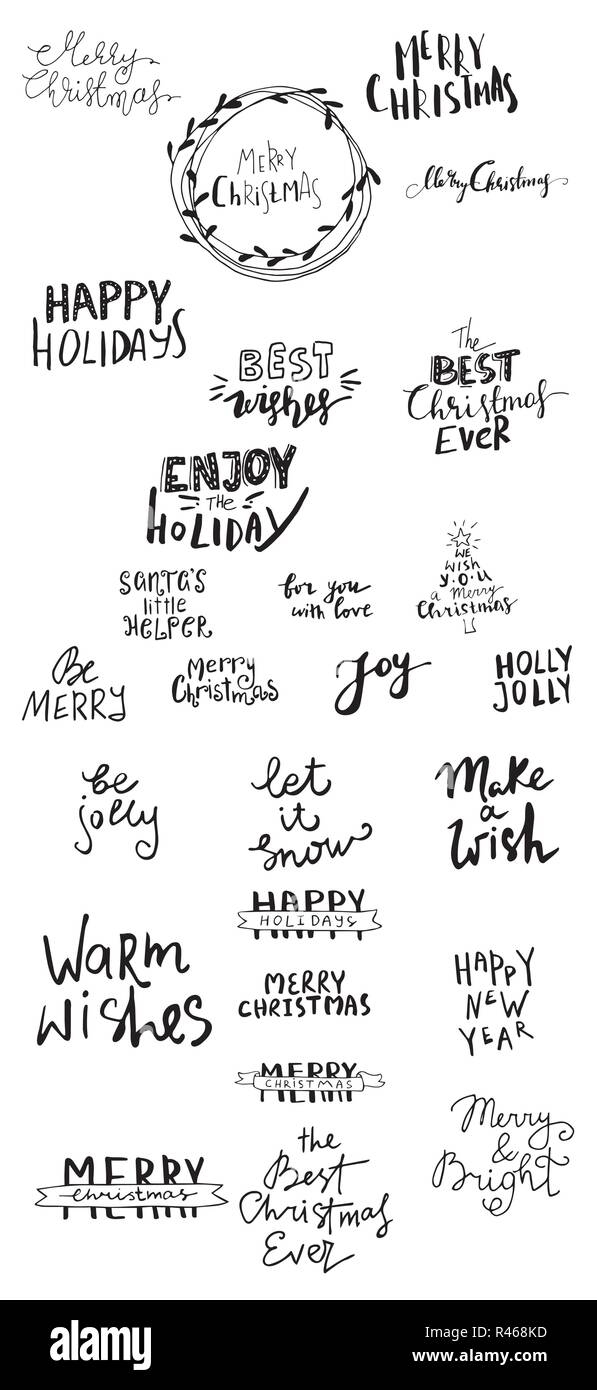 Merry
Christmas
MERRY
CHRISTMAS
MERRY
CHRISTMAS
Merry Christmas
HAPPY
HOLIDAYS
BEST
wishes
The
BEST
Christmas
EVER
ENJOY
THE
HOLIDAY
SANTA'S
little
HELPER
for you
with love
WE
WISH
YOU
a Merry
Christmas
Be
MERRY
Merry
Christmas
Joy
HOLLY
JOLLY
be
jolly
let
it
snow
Make
a
Wish
HAPPY
HOLIDAYS
Warm
wishes
MERRY
CHRISTMAS
HAPPY
NEW
YEAR
MERRY
CHRISTMAS
Merry
&
Bright
MERRY
Christmas
the
Best
Christmas
Ever
alamy
Image ID: R468KD
www.alamy.com